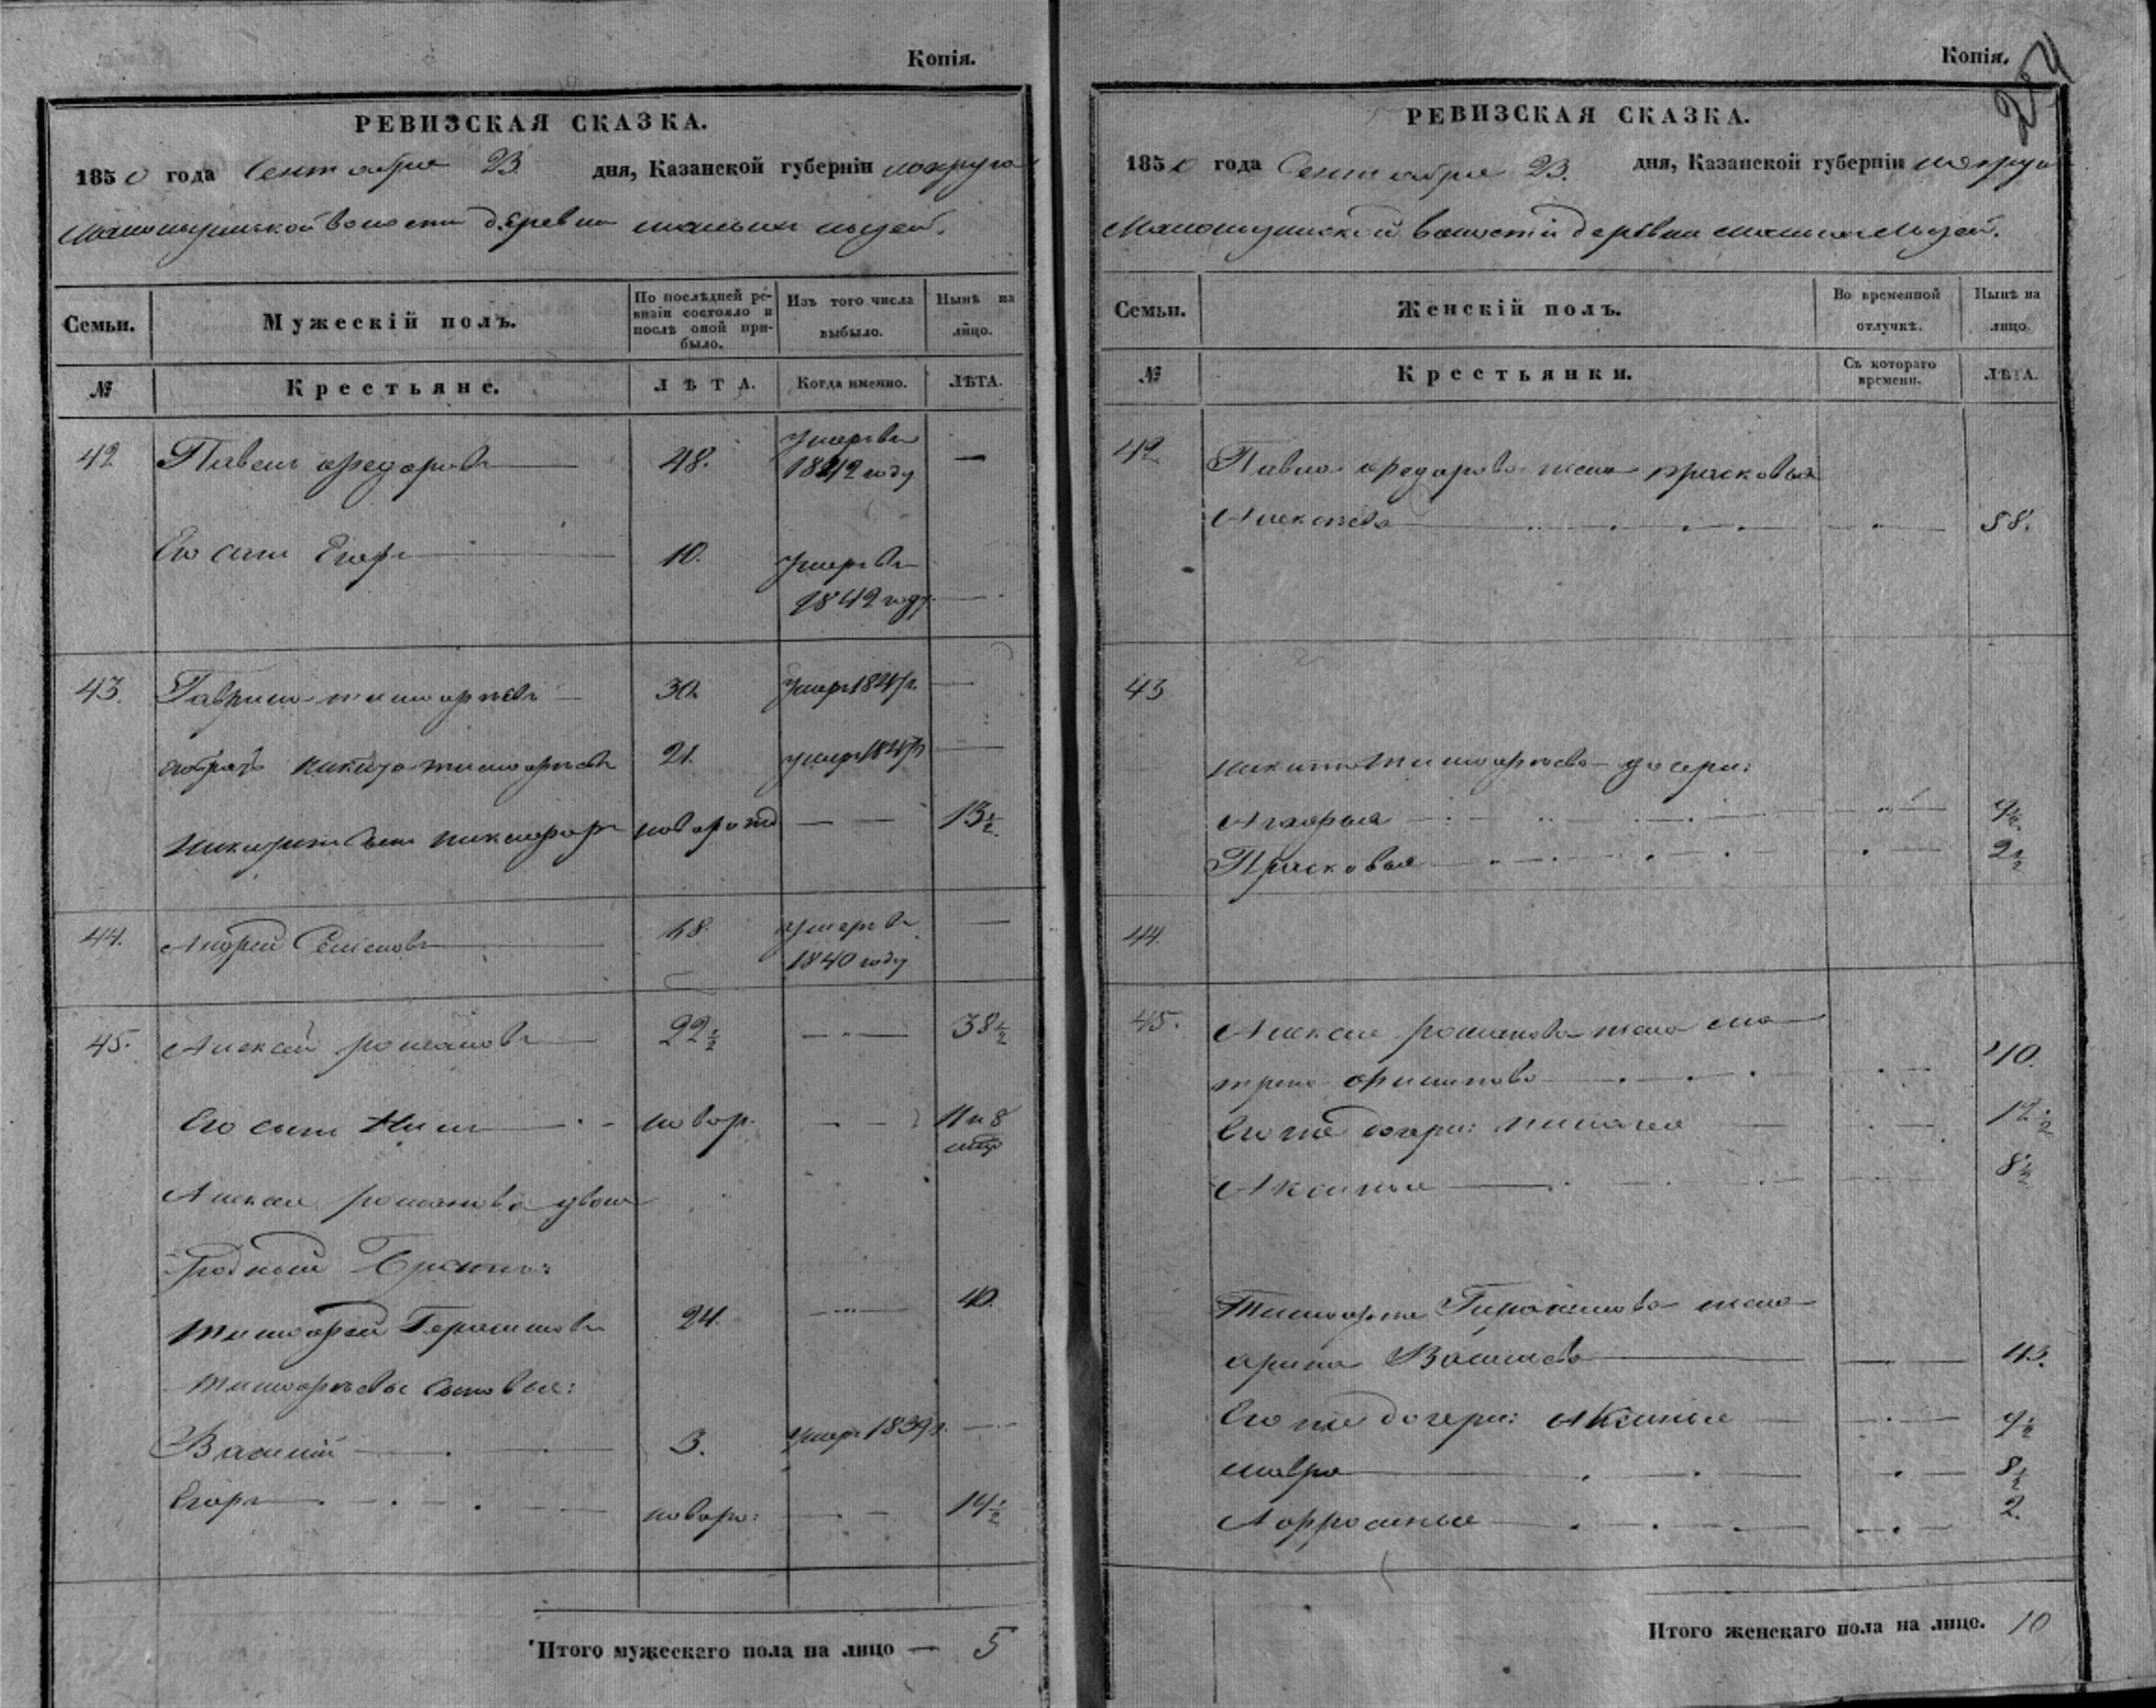 Копія.
РЕВИЗСКАЯ СКАЗКА.
1850 года Сентября 23 дня, Казанской губерніи округа
волости деревни
Семьи. Мужескій полъ. По послѣдней ревизіи состояло и послѣ оной прибыло. Изъ того числа выбыло. Нынѣ на лицо.
№ Крестьяне. ЛѢТА. Когда именно. ЛѢТА.
42 Павелъ Федоровъ 48. умеръ въ 1842 году —
Его сынъ Егоръ 10. умеръ въ 1842 году —
43. Гаврило Тимофѣевъ — 30 умеръ —
братъ Никита Тимофѣевъ 21. умеръ —
Никитинъ сынъ Никифоръ новорожд — — 13½
44. Андрей Семеновъ умеръ въ 1840 году —
45. Алексей Романовъ 22½ — 38½
Его сынъ новор. — 11 и 8
Алексея Романова двою
родный братъ:
Тимофей Герасимовъ 24. — 40.
Тимофѣевы сыновья:
Василий 3. умеръ 1839 г. —
Егоръ новоро: — 14½
Итого мужескаго пола на лицо — 5
Копія.
РЕВИЗСКАЯ СКАЗКА.
1850 года Сентября 23. дня, Казанской губерніи округа
волости деревни
Семьи. Женскій полъ. Во временной отлучкѣ. Нынѣ на лицо.
№ Крестьянки. Съ котораго времени. ЛѢТА.
42 Павла Федорова жена Прасковья
Алексѣева 58.
43
Никиты Тимофѣева дочери:
Прасковья 2½
44.
45. Алексея Романова жена Ма
трена Филипова 40.
Его же дочери: 12½
Аксинья 8½
Тимофея Герасимова жена
Арина Васильева 43.
Его же дочери: Аксинья
Мавра 8½
Афросинья 2.
Итого женскаго пола на лицо. 10